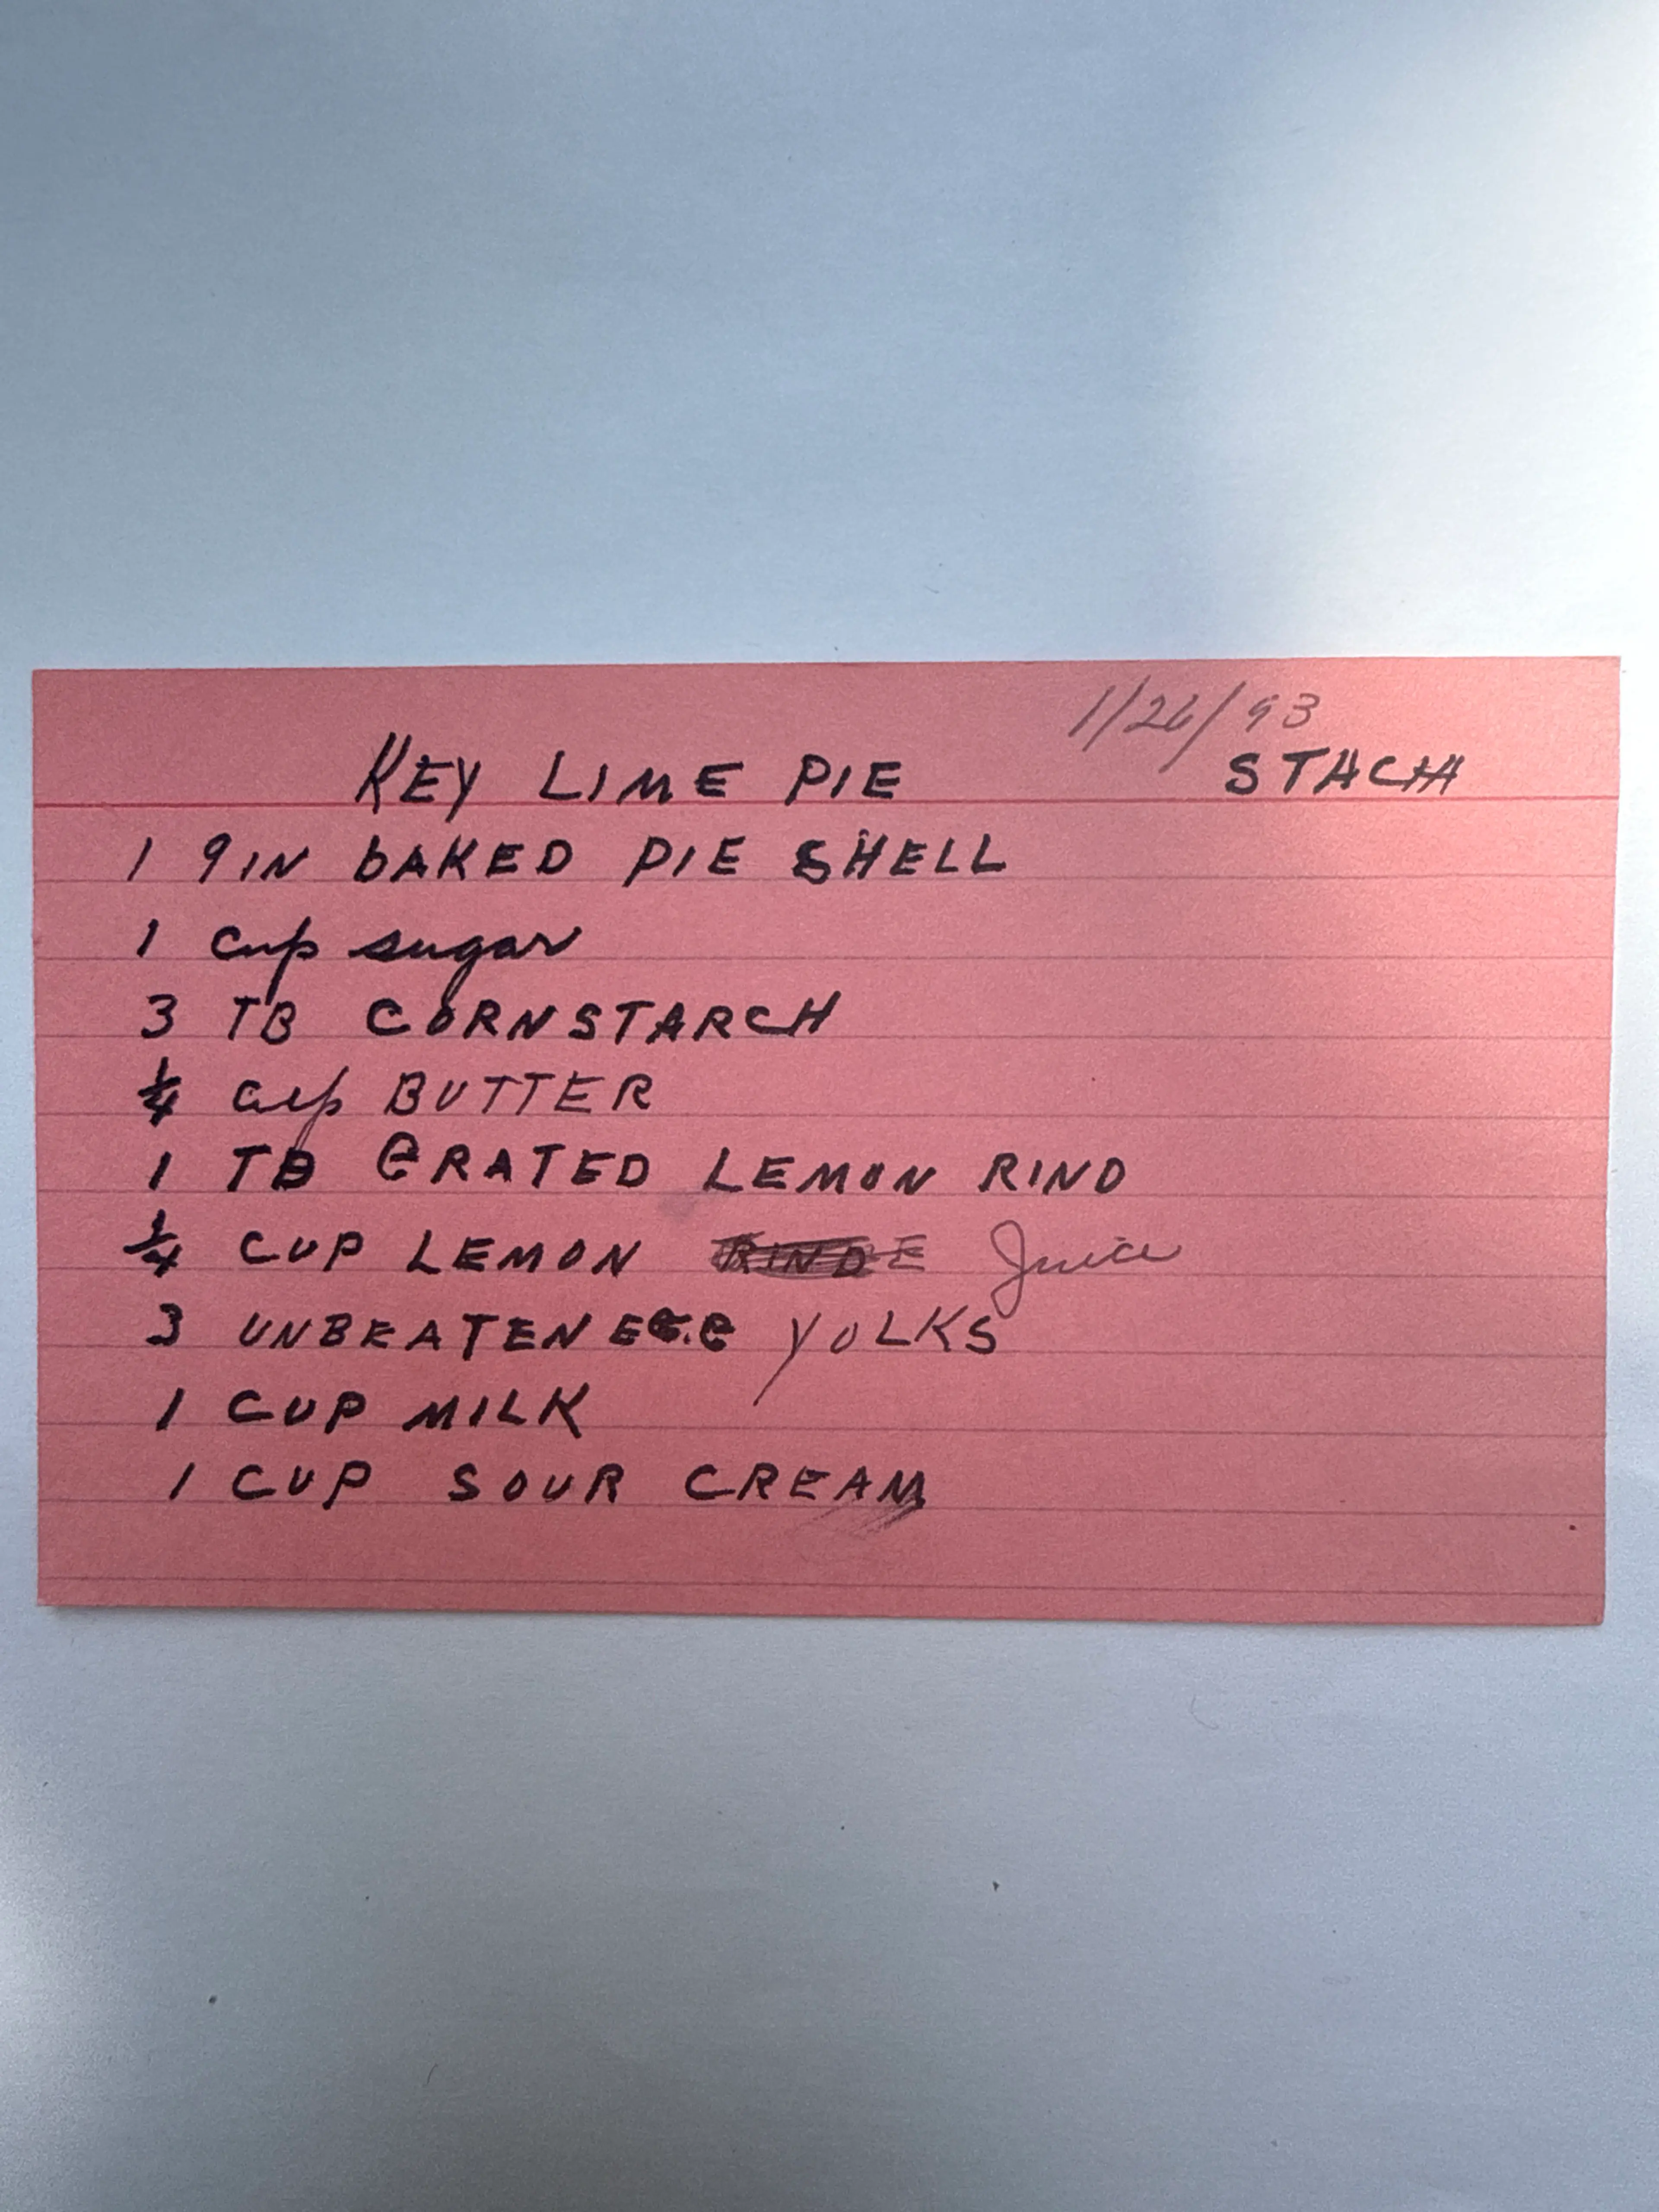 1/26/93
KEY LIME PIE STACHA
1 9 IN bAKED PIE SHELL
1 cup sugar
3 TB CORNSTARCH
1/4 cup BUTTER
1 TB GRATED LEMON RIND
1/4 CUP LEMON RINDE Juice
3 UNBEATEN EGG YOLKS
1 CUP MILK
1 CUP SOUR CREAM